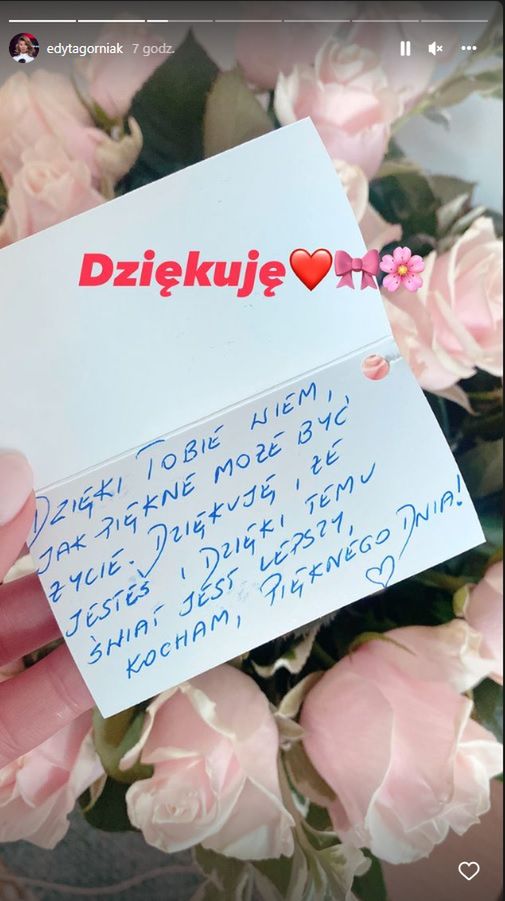 edytagorniak 7 godz.
Dziękuję❤️🎀🌸
DZIĘKI TOBIE WIEM,
JAK PIĘKNE MOŻE BYĆ
ŻYCIE. DZIĘKUJĘ, ŻE
JESTEŚ I DZIĘKI TEMU
ŚWIAT JEST LEPSZY,
KOCHAM, PIĘKNEGO DNIA!
♡